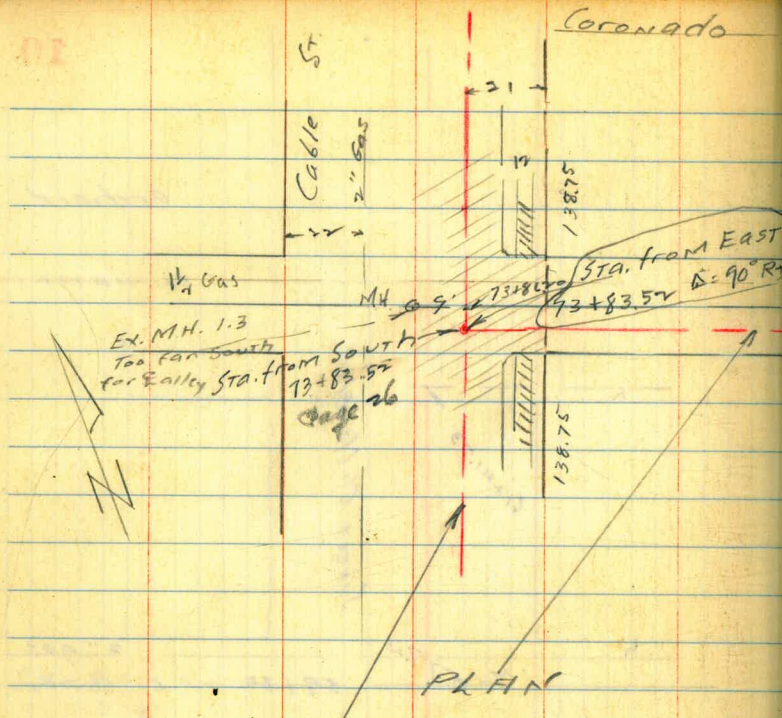 Coronado
Cable St
2" Gas
21
13
138.75
22
1 1/2 Gas
MH
9'
Sta. from East
73+83.52 Δ=90° Rt
Ex. M.H. 1.3
Too far South
for
Sta. from South
73+83.52
Page 26
138.75
N
PLAN